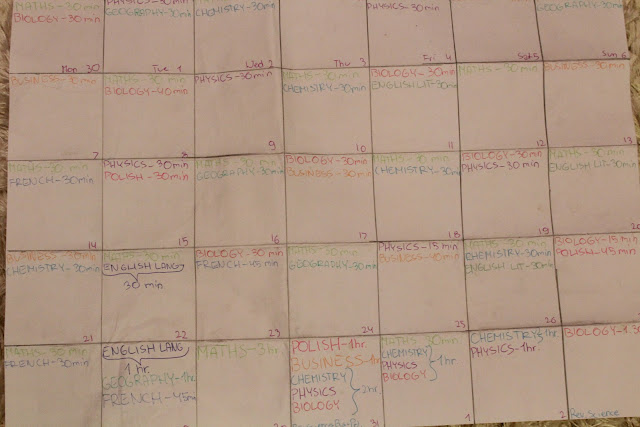 MATHS-30min
BIOLOGY-30min
Mon 30
PHYSICS-30min
GEOGRAPHY-30min
Tue 1
MATHS-30min
CHEMISTRY-30min
Wed 2
Thu 3
PHYSICS-30min
Fri 4
Sat 5
GEOGRAPHY-30min
Sun 6
BUSINESS-30min
7
MATHS-30 min
BIOLOGY-40min
8
PHYSICS-30min
9
MATHS-30min
CHEMISTRY-30min
10
BIOLOGY-30min
ENGLISH LIT-30min
11
MATHS-30 min
12
BUSINESS-30min
13
MATHS-30 min
FRENCH-30min
14
PHYSICS-30min
POLISH-30min
15
MATHS 30 min
GEOGRAPHY-30min
16
BIOLOGY-30min
BUSINESS-30min
17
MATHS-30 min
CHEMISTRY-30min
18
BIOLOGY-30min
PHYSICS-30 min
19
MATHS-30 min
ENGLISH LIT-30min
20
BUSINESS-30min
CHEMISTRY-30min
21
MATHS-30 min
ENGLISH LANG
30 min
22
BIOLOGY-30 min
FRENCH-45min
23
MATHS-30min
GEOGRAPHY-30min
24
PHYSICS-15 min
BUSINESS-40min
25
MATHS-30 min
CHEMISTRY-30min
ENGLISH LIT-30min
26
BIOLOGY-15min
POLISH-45min
MATHS-30 min
FRENCH-30min
ENGLISH LANG
1 hr
GEOGRAPHY-1hr
FRENCH-45min
MATHS-3hr
POLISH-1hr
BUSINESS-1hr
CHEMISTRY
PHYSICS
BIOLOGY
2hr
31
MATHS 30min
CHEMISTRY
PHYSICS
BIOLOGY
1hr
1
CHEMISTRY-1hr
PHYSICS-1hr
2
BIOLOGY-1.30
Rev. Science